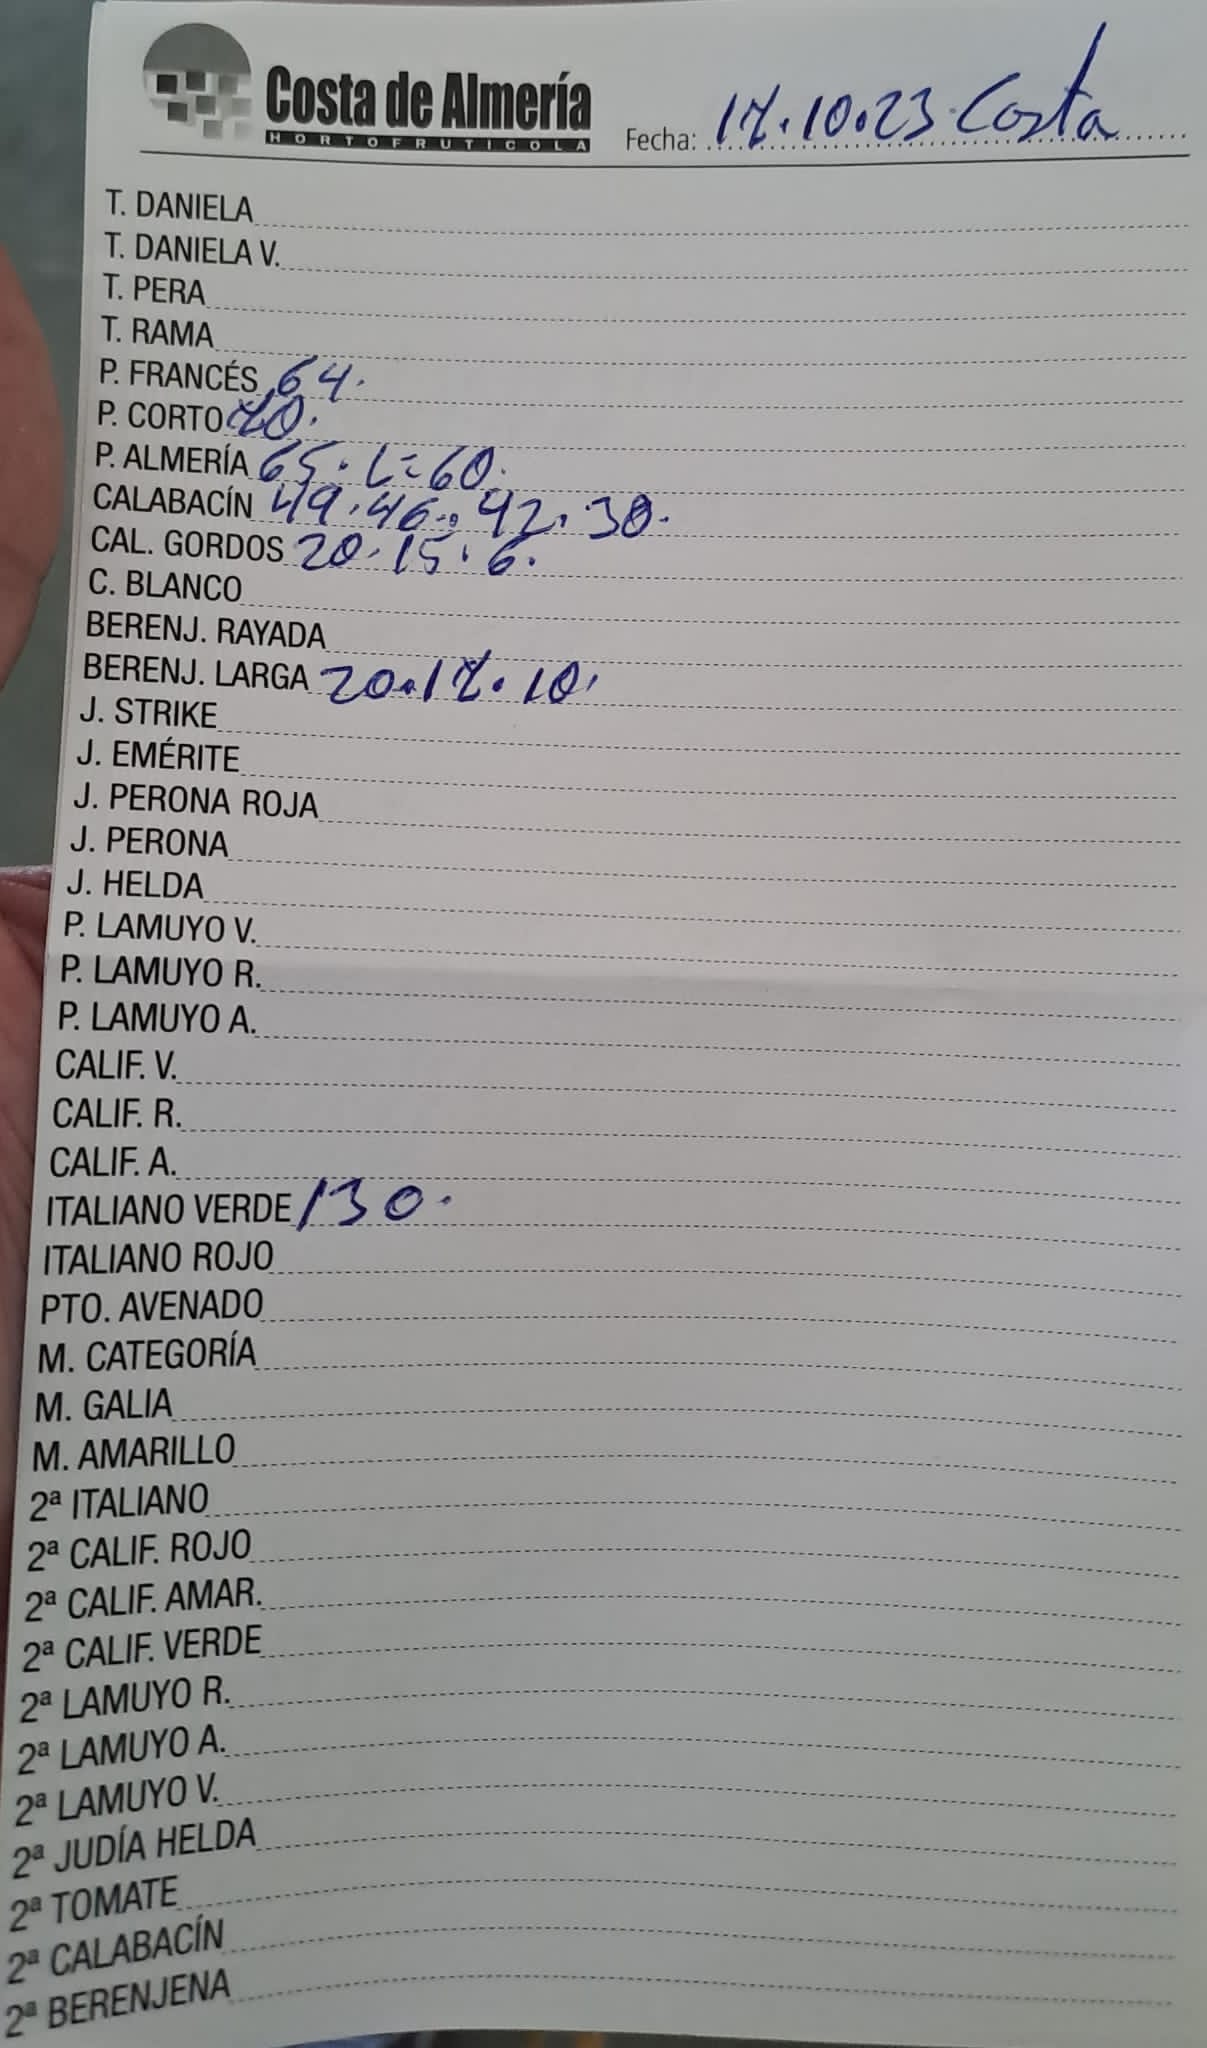 Costa de Almería
HORTOFRUTICOLA
Fecha: 17.10.23 Costa
T. DANIELA
T. DANIELA V.
T. PERA
T. RAMA
P. FRANCÉS 64.
P. CORTO 70.
P. ALMERÍA 65. L=60.
CALABACÍN 49.46.. 42. 30.
CAL. GORDOS 20.15.6.
C. BLANCO
BERENJ. RAYADA
BERENJ. LARGA 20.17.10.
J. STRIKE
J. EMÉRITE
J. PERONA ROJA
J. PERONA
J. HELDA
P. LAMUYO V.
P. LAMUYO R.
P. LAMUYO A.
CALIF. V.
CALIF. R.
CALIF. A.
ITALIANO VERDE 130.
ITALIANO ROJO
PTO. AVENADO
M. CATEGORÍA
M. GALIA
M. AMARILLO
2ª ITALIANO
2ª CALIF. ROJO
2ª CALIF. AMAR.
2ª CALIF. VERDE
2ª LAMUYO R.
2ª LAMUYO A.
2ª LAMUYO V.
2ª JUDÍA HELDA
2ª TOMATE
2ª CALABACÍN
2ª BERENJENA